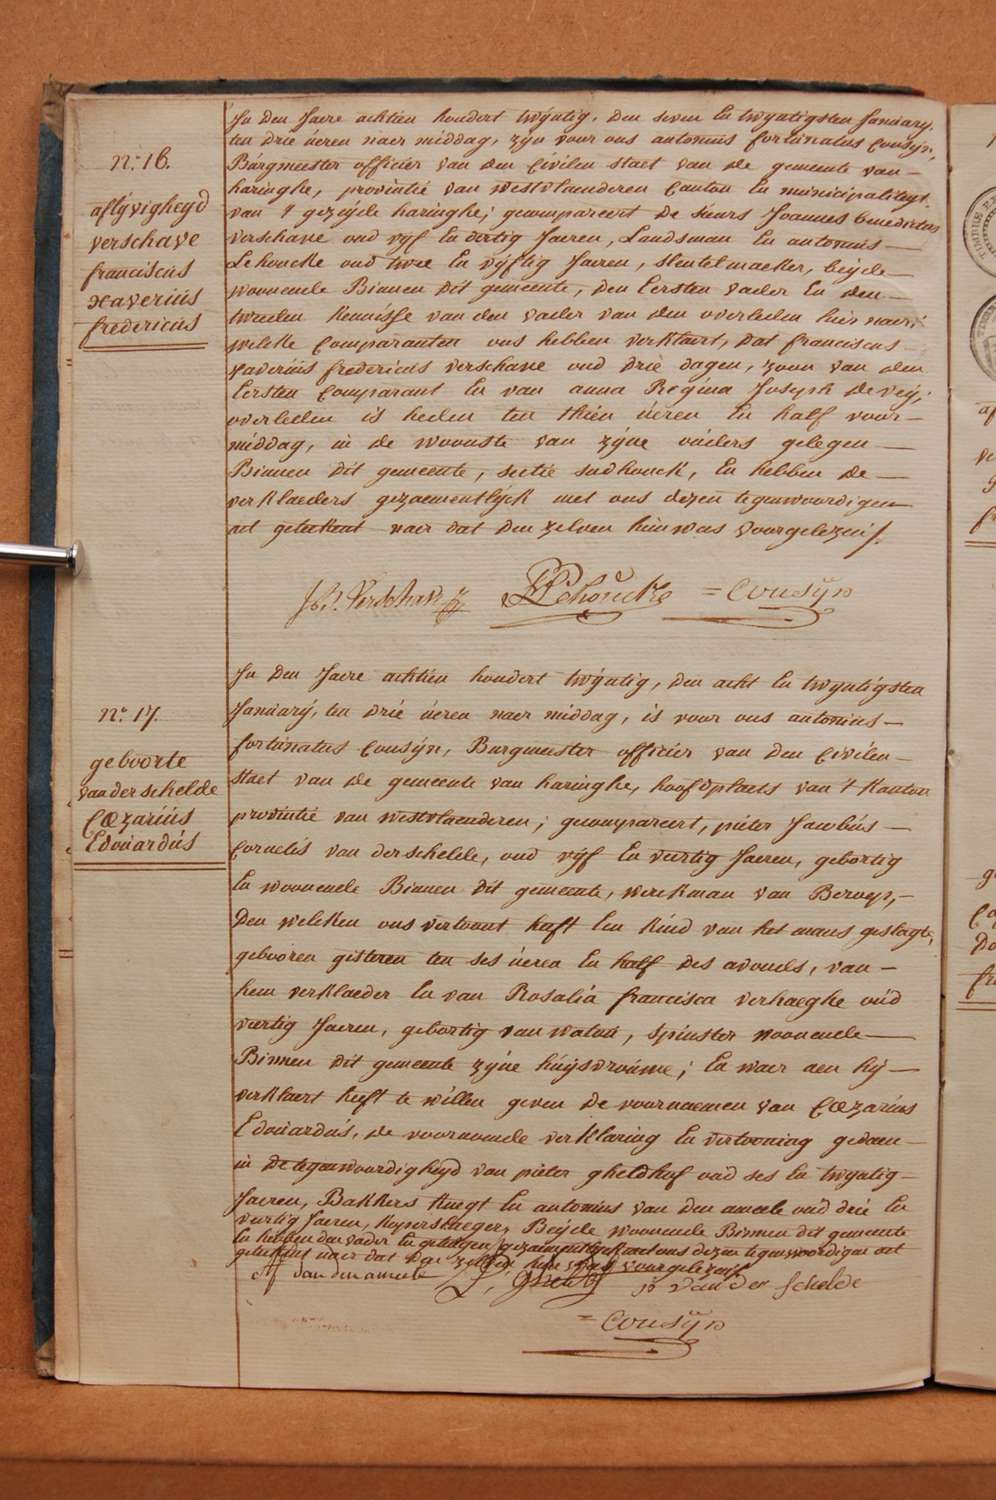 n.° 16.
aflÿvigheÿd
verschave
franciscus
xaverius
fredericus
In Den Jaere achtien hondert twÿntig, Den seven En twÿntigsten Januarÿ,
ten drie úeren naer middag, zÿn voor ons antonius fortunatus Cousÿn,
Búrgmeester officier van den Civilen staet van de gemeente van
haringhe, provintie van westvlaenderen Canton En municipaliteÿt
van 't gezeÿde haringhe; gecompareert De sieurs Joannes benedictus
verschave oud vÿf En dertig Jaeren, Landsman En antonius
Lehoucke oud twee En vÿftig Jaeren, sleutelmaeker, beÿde
woonende Binnen Dit gemeente, Den Eersten vader En den
tweeden kennisse van den vader van den overleden hier naer;
welcke Comparanten ons hebben verklaert, Dat franciscus
xaverius fredericus verschave oud drie dagen, zoon van den
Eersten Comparant En van anna Regina Joseph Deveÿ,
overleden is heden ten thien úeren En half voor
middag, in de woonste van zÿne oúders gelegen
Binnen dit gemeente, sectie sudhouck, En hebben De
verklaeders gezaementlÿck met ons dezen tegenwoordigen
act geteekent naer dat Den zelven hun was voorgelezen
Verschave Lehoucke = Cousÿn
n.° 17.
geboorte
van der schelde
Cæzariús
Edoúardús
In Den Jaere achtien hondert twÿntig, Den acht En twÿntigsten
Januarÿ, ten drie úeren naer middag, is voor ons antonius
fortúnatus Cousÿn, Burgmeester officier van den Civilen
staet van de gemeente van haringhe, hoofdplaets van 't Kanton
provintie van westvlaenderen; gecompareert, pieter Jacobús
Cornelis van der schelde, oud vÿf En veertig Jaeren, gebortig
En woonende Binnen Dit gemeente, werckman van Beroep,
Den welcken ons vertoont heeft Een kind van het mans geslagte,
gebooren gisteren ten ses úeren En half Des avonds, van
hem verklaeder En van Rosalia francisca verhaeghe oúd
veertig Jaeren, gebortig van watou, spinster woonende
Binnen dit gemeente zÿne húÿsvroúwe; En waer aen hÿ
verklaert heeft te willen geven De voornaemen van Cæzarius
Edoúardús, de voornoemde verklaring En vertooning gedaen
in De tegenwoordigheÿd van pieter gheldhof oud ses En twÿntig
Jaeren, Bakkers knegt En antonius van den ameele oúd drie En
veertig Jaeren, kuÿperslaeger, Beÿde woonende Binnen dit gemeente
En hebben den vader En getuigen gezaementlÿck met ons dezen tegenwoordigen act
geteekent naer dat Den zelven hun was voorgelezen
van den ameele P. gheldhof p van der schelde
= Cousÿn